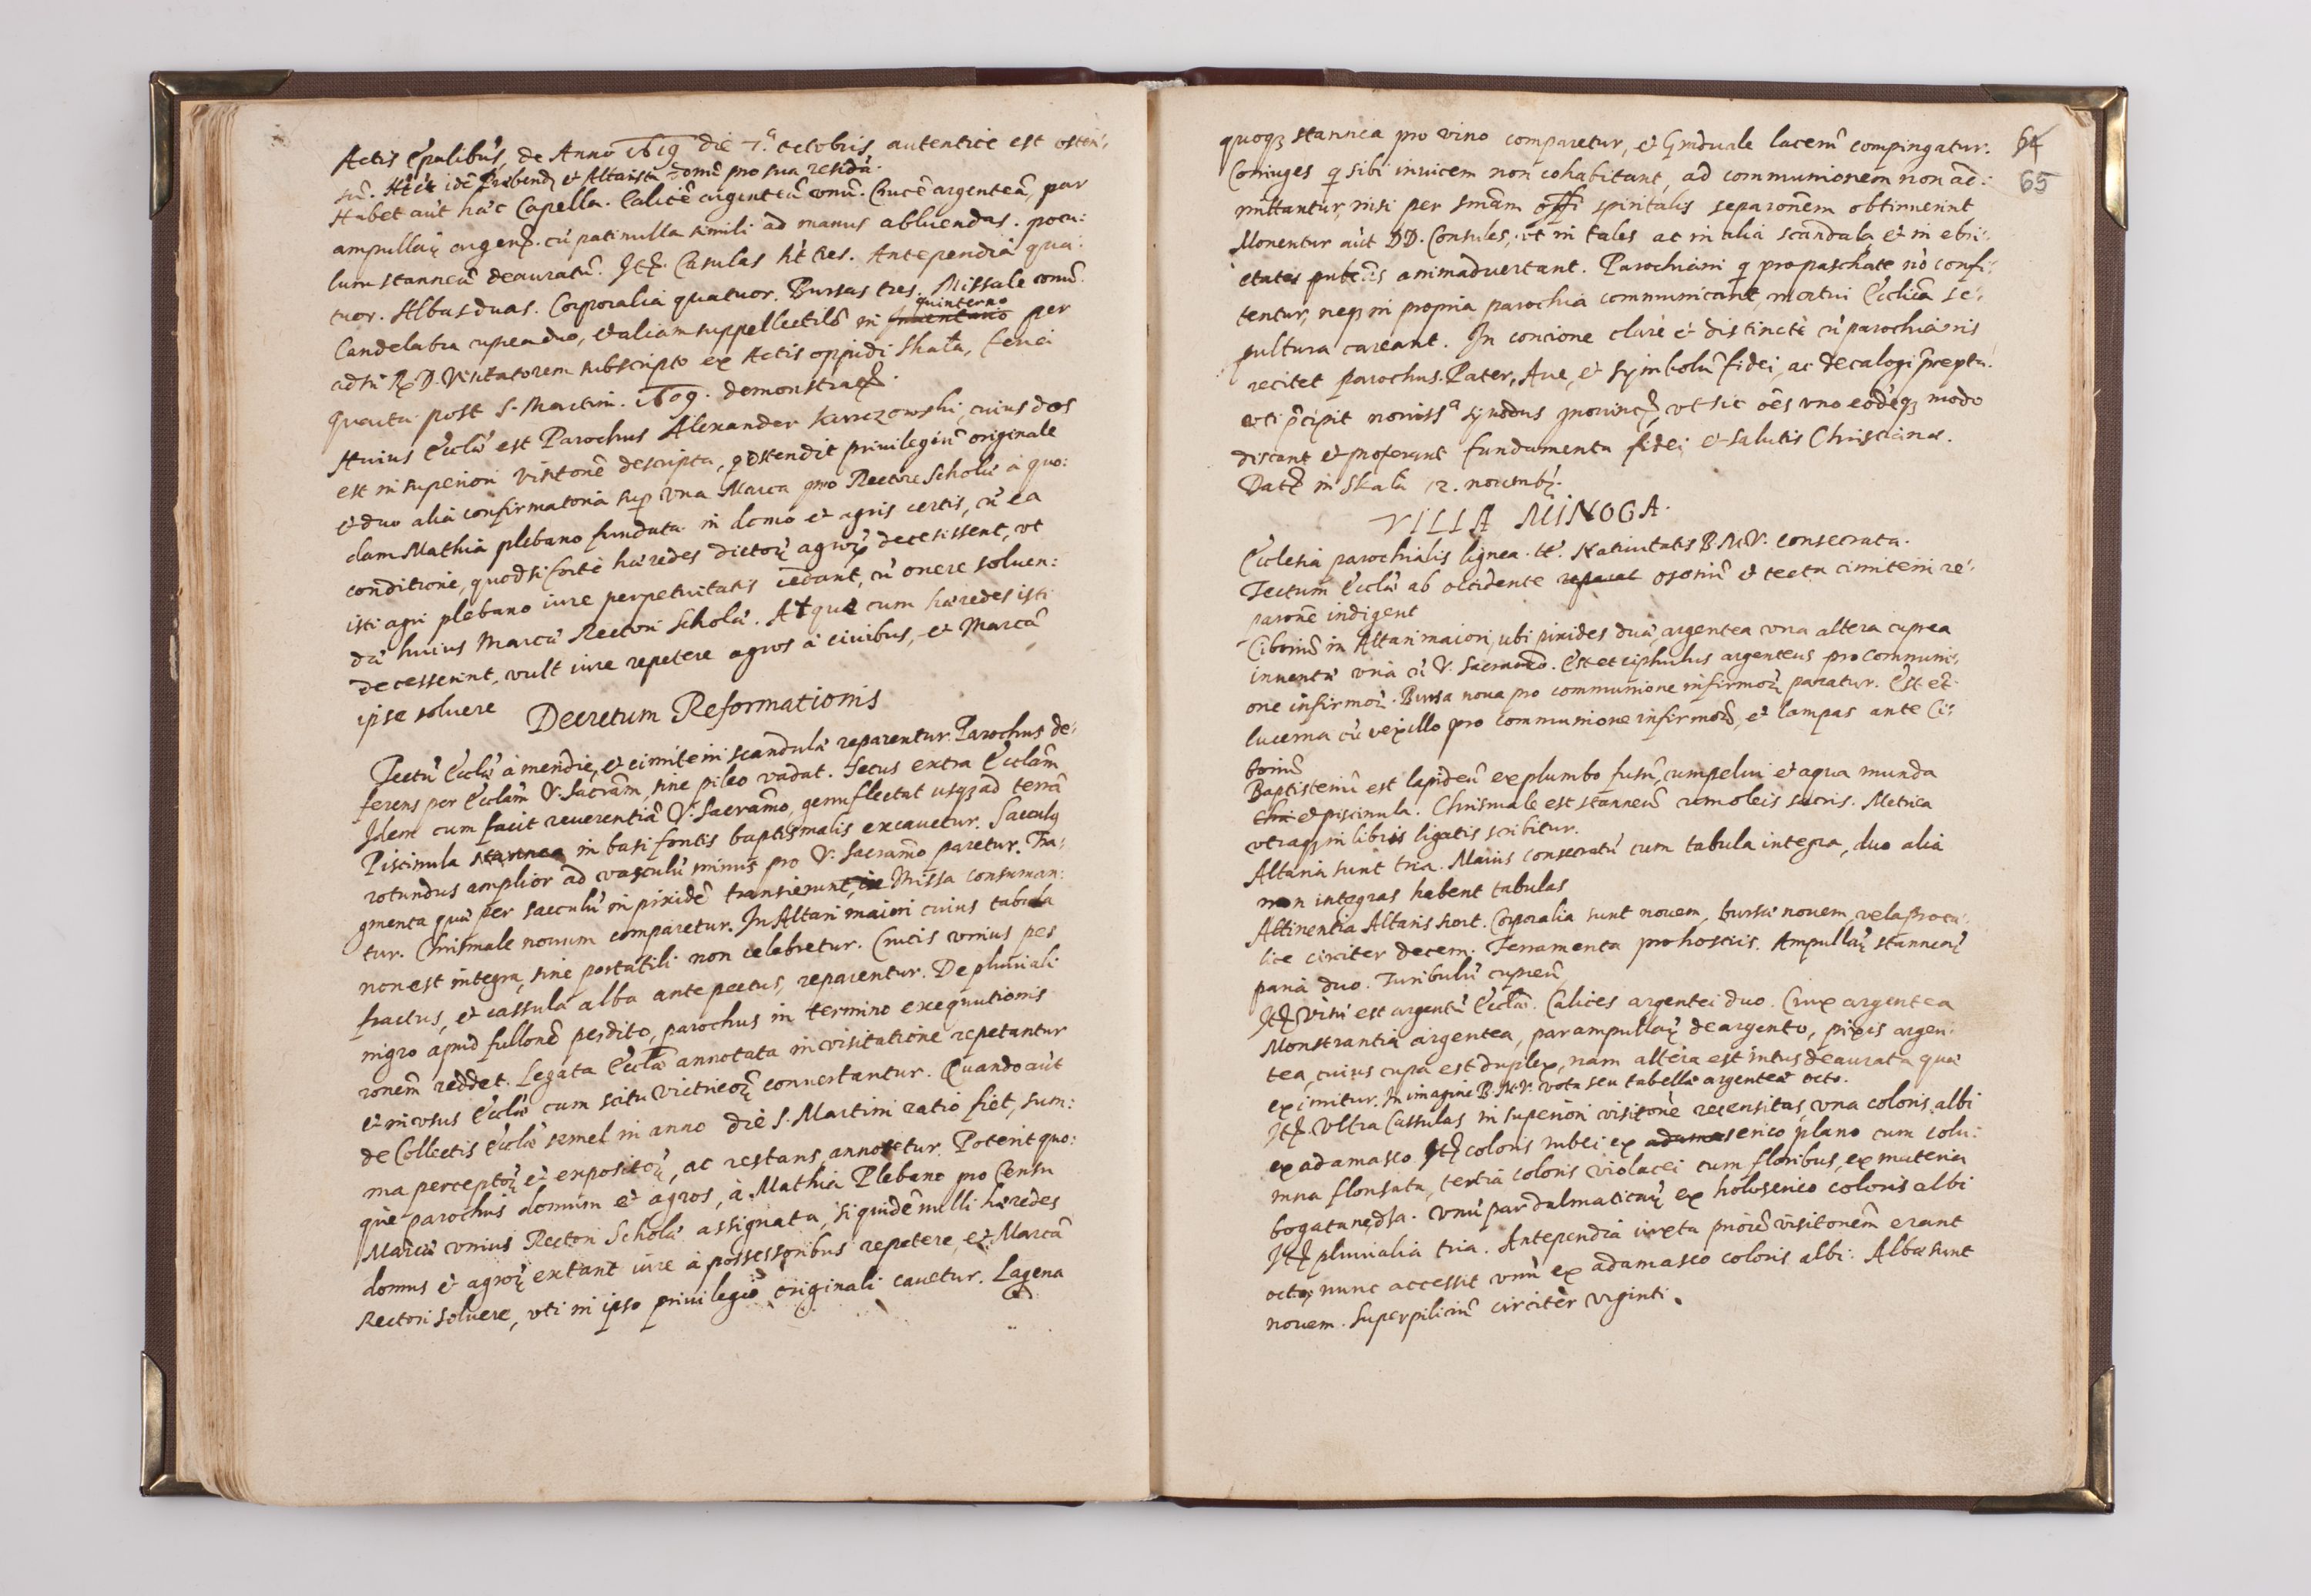 Actis Epalibus, de Anno 1619 die 7.a octobris autentice est osten:
sū. Hēt idē Prębend et Altarista domū pro sua residā.
Habet aūt hæc Capella. Calicē argenteū unū. Crucē argenteā, par
ampullaȝ argenꝫ. cū patinulla simili ad manus abluendas. pocu:
lum stanneū deauratū. Itꝫ. Casulas hēt tres. Antependia qua:
tuor. Albas duas. Corporalia quatuor. Bursas tres. Missale unū
Candelabra cuprea duo, et aliam suppellectilē in Inuentario quinterno per
adm̄ R. D. Visitatorem subscripto ex Actis oppidi Skała, feria
quarta post S. Martini. 1609. demonstraꝫ.
Huius Eccłæ est Parochus Alexander Karczowski, cuius dos
est in superiori visitonē descripta, ostendit priuilegiū originale
et duo alia confirmatoria sup vna Marca pro Rectore Scholæ a quo:
dam Mathia plebano fundata in domo et agris certis, cū ea
conditione, quod si fortè hæredes dictoȝ agroȝ decesissent, vt
isti agri plebano iure perpetuitatis cedant, cū onere soluen:
dæ huius Marcæ Rectori Scholæ. Atque cum hæredes isti
decesserint, vult iure repetere agros à ciuibus, et Marcā
ipse soluere
Decretum Reformationis
Tectū Eccłæ à meridie, et cimiterii scandulæ reparentur. Parochus de:
ferens per Eccłam V. Sacram̄, sine pileo vadat. Secus extra Eccłam
Idem cum facit reuerentiā V. Sacramō, genuflectat usqȝ ad terrā
Piscinula stannea in basi fontis baptismalis excauetur. Sacculꝫ
rotundus amplior ad vasculū minus pro V. Sacramō paretur. Fra:
gmenta quæ per sacculū in pixidē transierunt, in Missa consuman:
tur. Chrismale nouum comparetur. In Altari maiori cuius tabula
non est integra, sine portatili non celebretur. Crucis vnius pes
fractus, et cassula alba ante pectus, reparentur. De pluuiali
nigro apud fullonē perdito, parochus in termino exequutionis
ronem̄ reddet. Legata Eccłæ annotata in visitatione repetantur
et in vsus Eccłæ cum scitu vitricoȝ conuertantur. Quando aūt
de Collectis Eccłæ semel in anno die S. Martini ratio fiet, sum:
ma perceptoȝ et expositoȝ, ac restans annotetur. Poterit quo:
que parochus domum et agros, à Mathia Plebano pro Censu
Marcæ vnius Rectori Scholæ assignata, siquidē nulli hæredes
domus et agroȝ extant iure à possessoribus repetere, et Marcā
Rectori soluere, vti in ipso priuilegio originali cauetur. Lagena
64
65
quoqȝ stannea pro vino comparetur, et Graduale lacerū compingatur.
Coniuges q sibi inuicem non cohabitant, ad communionem non ad:
mittantur, nisi per snīam offī spiritalis separonem̄ obtinuerint
Monentur aūt DD. Consules, ut in tales ac in alia scandala, et in ebri:
etates pubcīs animaduertant. Parochiani q pro paschate nō confi:
tentur, neqȝ in propria parochia communicant, mortui Eccłica se:
pultura careant. In concione clarè et distinctè cū parochianis
recitet parochus. Pater, Aue, et Symbolū fidei, ac decalogi prępta.
vti pręcipit nouissa synodus prouincꝫ, vt sic oēs vno eodēqȝ modo
discant et proferant fundamenta fidei et salutis Christianæ.
Datꝫ in Skała 12. nouembꝫ.
VILLA MINOGA.
Ecclesia parochialis lignea. tt. Natiuitatis B.M.V. consecrata.
Tectum Eccłæ ab occidente reparat ossoriū et tecta cimiterii re:
paronē indigent
Ciboriū in Altari maiori, ubi pixides duæ, argentea vna altera cuprea
inuentæ vnà cū V. Sacramēto. Est et ciphulus argenteus pro communi:
one infirmoȝ. Bursa noua pro communione infirmoȝ paratur. Est et
lucerna cū vexillo pro communione infirmoȝ, et lampas ante Ci:
boriū
Baptisteriū est lapideū ex plumbo fusū, cum pelui et aqua munda
Chri et piscinula. Chrismale est stanneū cum oleis sacris. Metrica
vtraqȝ in libris ligatis scribitur.
Altaria sunt tria. Maius consecratū cum tabula integra, duo alia
non integras habent tabulas
Attinentia Altaris hæc. Corporalia sunt nouem, bursæ nouem, vela pro ca:
lice circiter decem. Ferramenta pro hostiis. Ampullaȝ stanneaȝ
paria duo. Turibulū cupreū
Itꝫ Visū est argentū Eccłæ. Calices argentei duo. Crux argentea
Monstrantia argentea, par ampullaȝ de argento, pixis argen:
tea, cuius cupa est duplex, nam altera est intus deaurata quæ
eximitur. In imagine B.M.V. vota seu tabellæ argenteæ octo.
Itꝫ. Vltra Cassulas in superiori visitonē recensitas, vna coloris albi
ex adamasco. Itꝫ coloris rubei ex adamas serico plano cum colu:
mna florisata, tertia coloris violacei cum floribus, ex materia
bogatanędla. vnū par dalmaticaȝ ex holoserico coloris albi
Itꝫ pluuialia tria. Antependia iuxta priorē visitonem̄ erant
octo, nunc accessit vnū ex adamasco coloris albi. Albæ sunt
nouem. Superpiliciū circiter viginti.